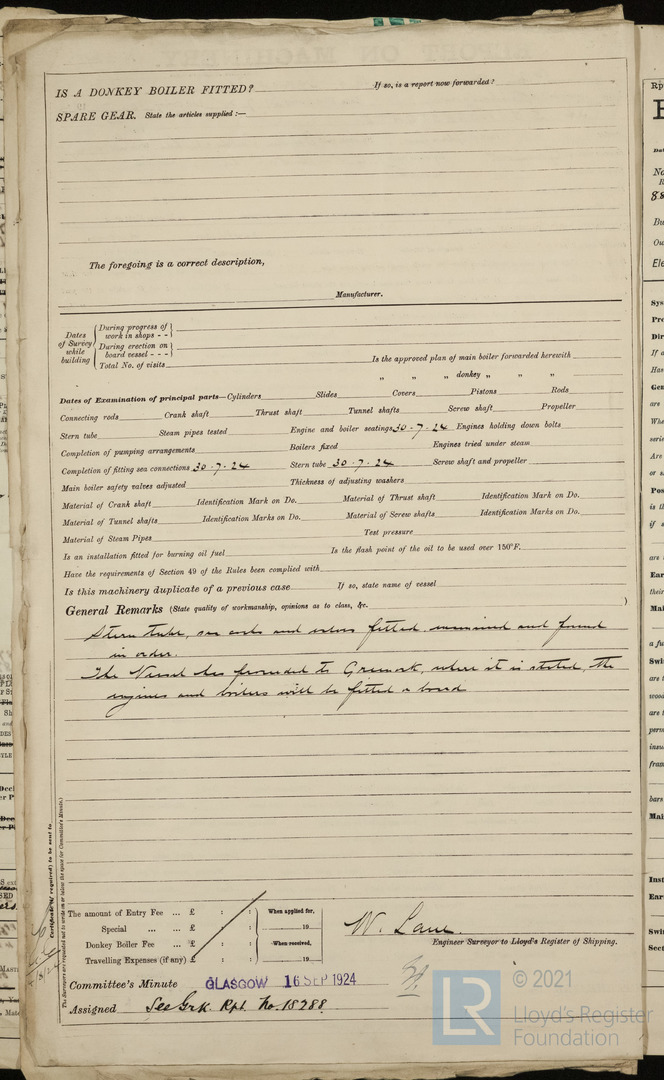 IS A DONKEY BOILER FITTED? If so, is a report now forwarded?
SPARE GEAR. State the articles supplied :—
The foregoing is a correct description,
Manufacturer.
Dates of Survey while building
During progress of work in shops - -
During erection on board vessel - - -
Total No. of visits
Is the approved plan of main boiler forwarded herewith
" " " donkey " " "
Dates of Examination of principal parts—Cylinders Slides Covers Pistons Rods
Connecting rods Crank shaft Thrust shaft Tunnel shafts Screw shaft Propeller
Stern tube Steam pipes tested Engine and boiler seatings 30-7-24 Engines holding down bolts
Completion of pumping arrangements Boilers fixed Engines tried under steam
Completion of fitting sea connections 30-7-24 Stern tube 30-7-24 Screw shaft and propeller
Main boiler safety valves adjusted Thickness of adjusting washers
Material of Crank shaft Identification Mark on Do. Material of Thrust shaft Identification Mark on Do.
Material of Tunnel shafts Identification Marks on Do. Material of Screw shafts Identification Marks on Do.
Material of Steam Pipes Test pressure
Is an installation fitted for burning oil fuel Is the flash point of the oil to be used over 150°F.
Have the requirements of Section 49 of the Rules been complied with
Is this machinery duplicate of a previous case If so, state name of vessel
General Remarks (State quality of workmanship, opinions as to class, &c. )
Stern tube, sea cocks and valves fitted examined and found
in order.
The Vessel has proceeded to Greenock, where it is stated, the
engines and boilers will be fitted a board
Certificate (if required) to be sent to
The Surveyors are requested not to write on or below the space for Committee's Minute.)
The amount of Entry Fee ... £ : : When applied for,
Special ... ... £ : : 19
Donkey Boiler Fee ... £ : : When received,
Travelling Expenses (if any) £ : : 19
W. Lane.
Engineer Surveyor to Lloyd's Register of Shipping.
Committee's Minute GLASGOW 16 SEP 1924
Assigned See Grk. Rpt. No. 18288.
LR © 2021
Lloyd's Register
Foundation